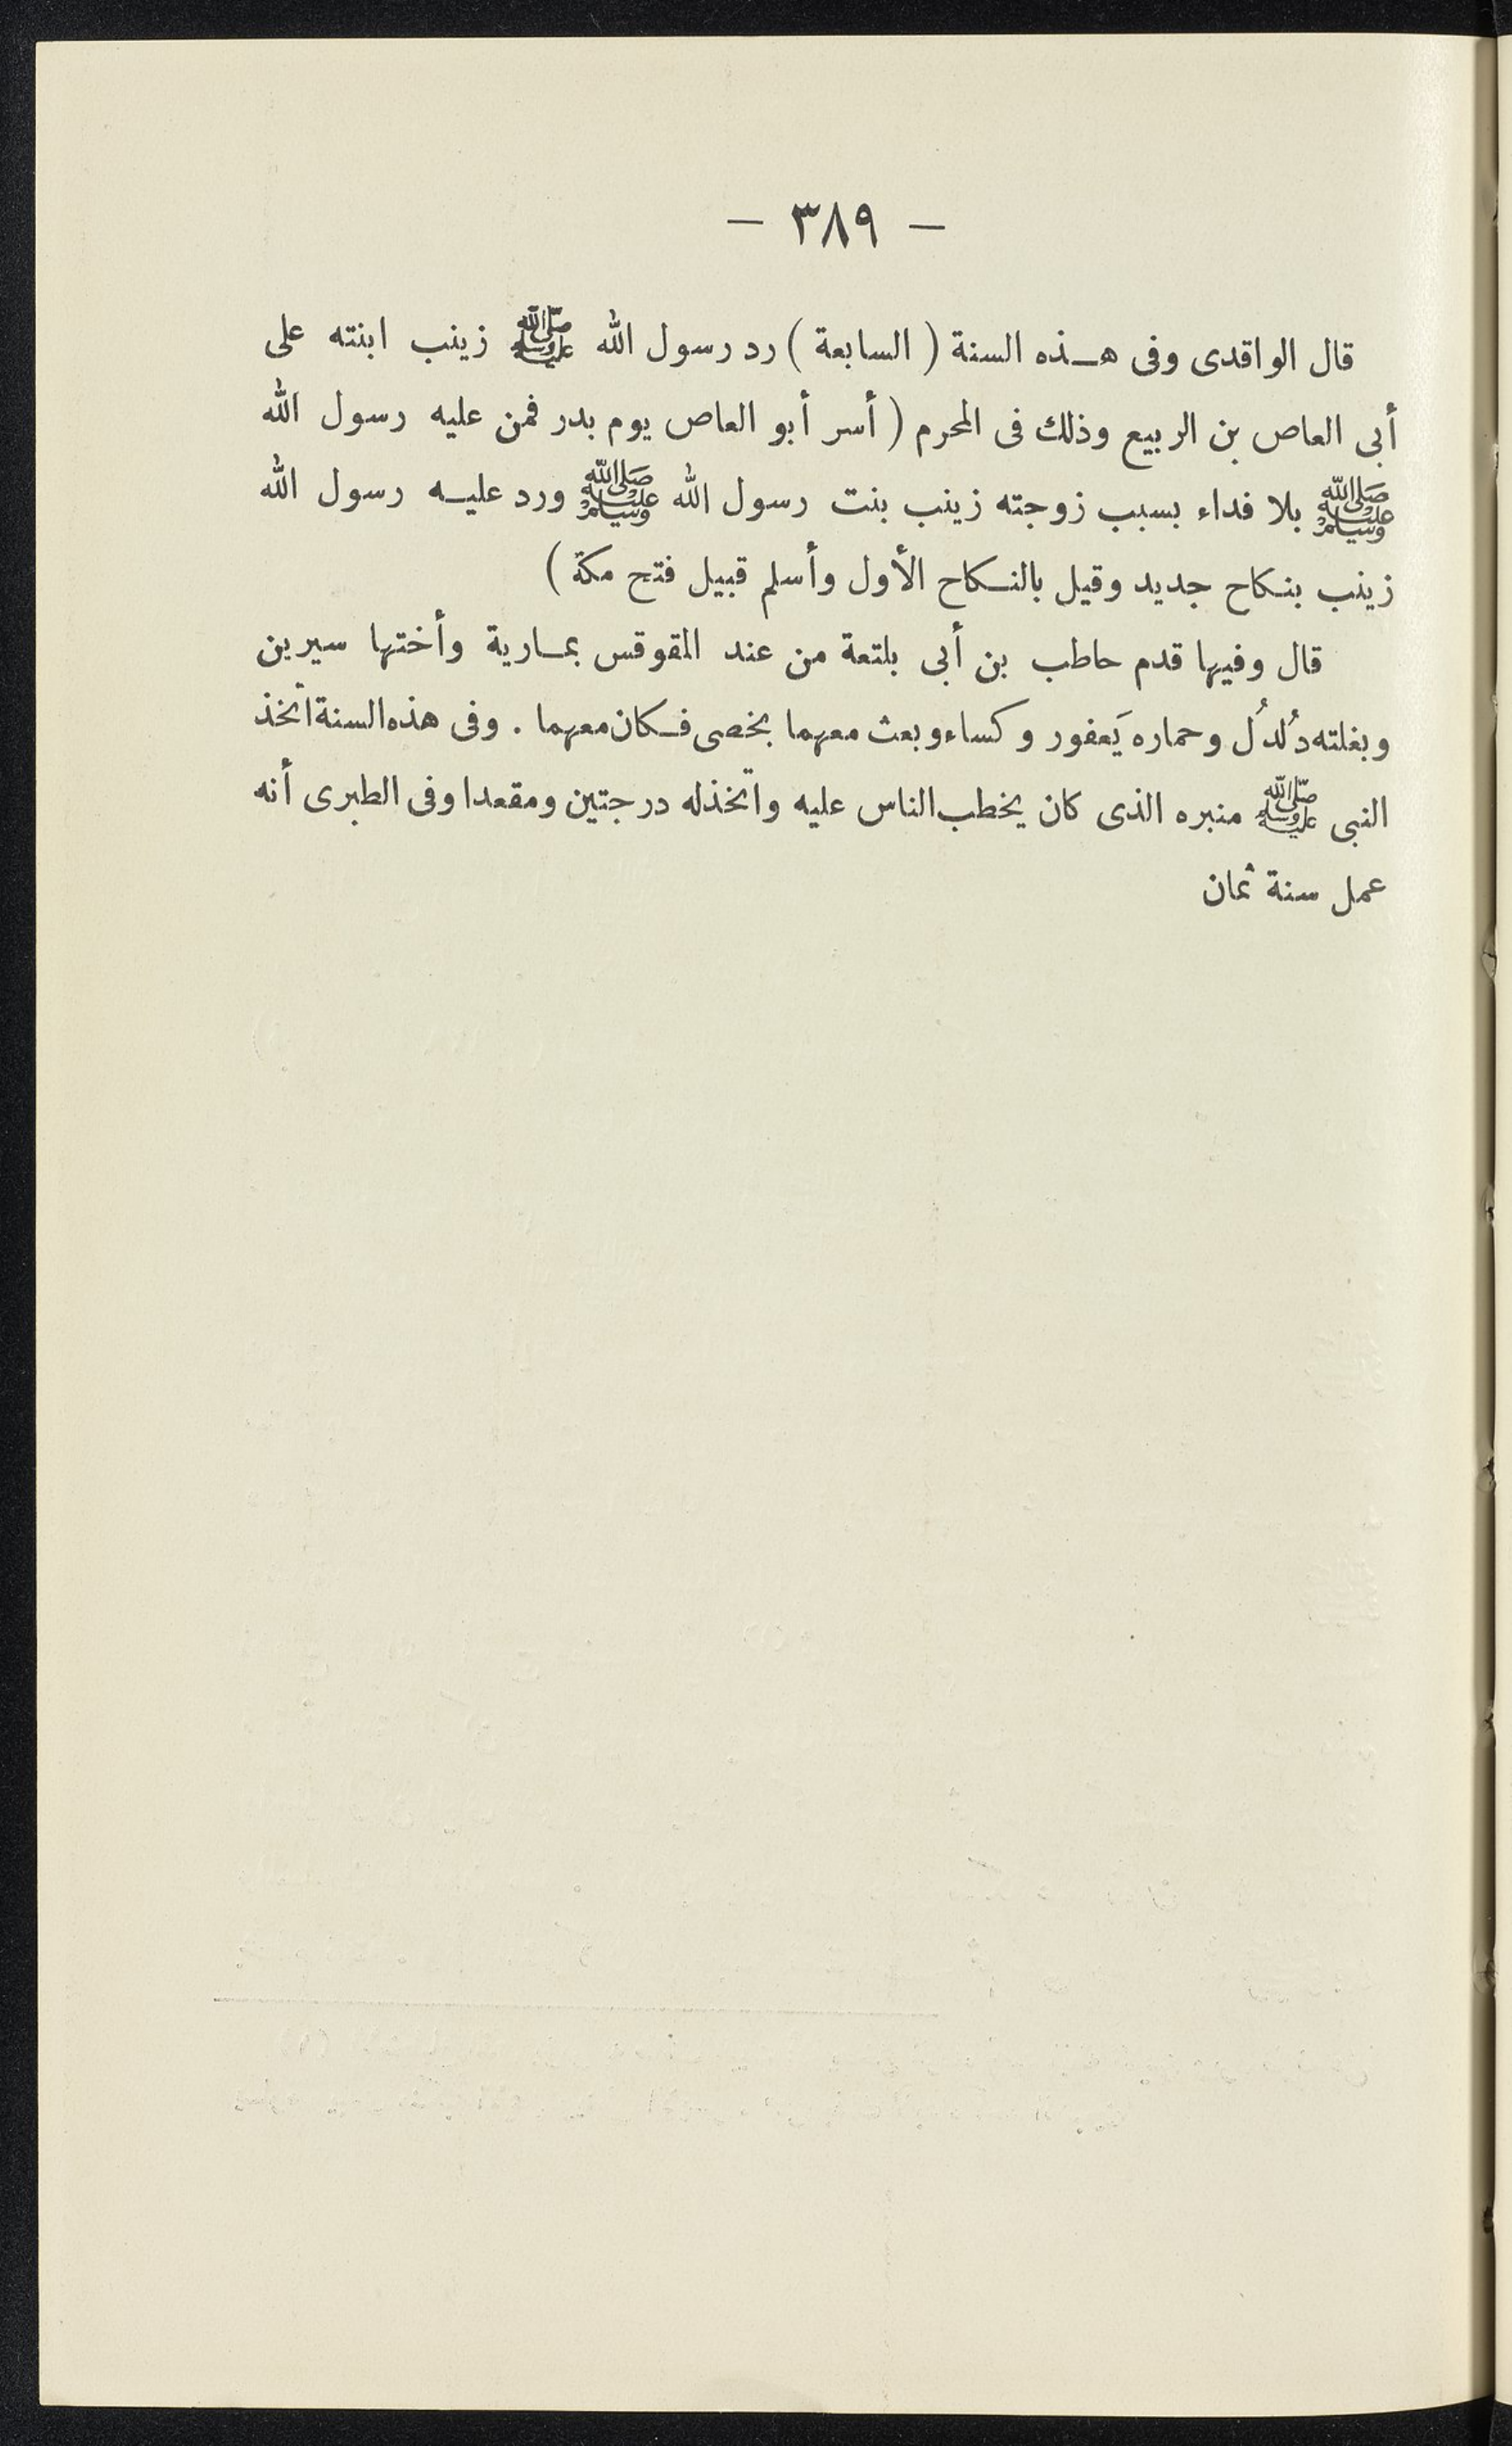 — ٣٨٩ —
قال الواقدى وفى هـذه السنة ( السابعة ) رد رسول الله ﷺ زينب ابنته على
أبى العاص بن الربيع وذلك فى المحرم ( أسر أبو العاص يوم بدر فمن عليه رسول الله
ﷺ بلا فداء بسبب زوجته زينب بنت رسول الله ﷺ ورد عليـه رسول الله
زينب بنكاح جديد وقيل بالنـكاح الأول وأسلم قبيل فتح مكة )
قال وفيها قدم حاطب بن أبى بلتعة من عند المقوقس بمـارية وأختها سيرين
وبغلته دُلدُل وحماره يَعفور وكساء وبعث معهما بخصى فـكان معهما . وفى هذه السنة اتّخذ
النبى ﷺ منبره الذى كان يخطب الناس عليه واتّخذله درجتين ومقعدا وفى الطبرى أنه
عمل سنة ثمان